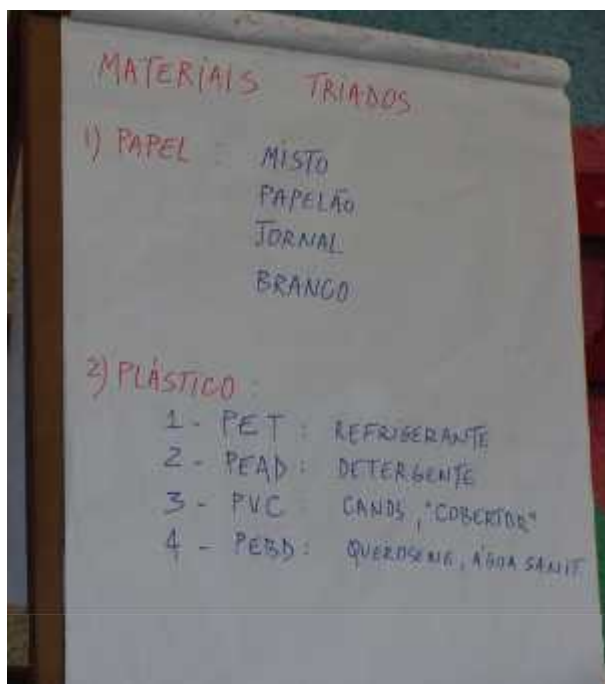 MATERIAIS TRIADOS
1) PAPEL : MISTO
PAPELÃO
JORNAL
BRANCO
2) PLÁSTICO :
1 - PET : REFRIGERANTE
2 - PEAD : DETERGENTE
3 - PVC : CANOS, "COBERTOR"
4 - PEBD : QUEROSENE, ÁGUA SANIT.